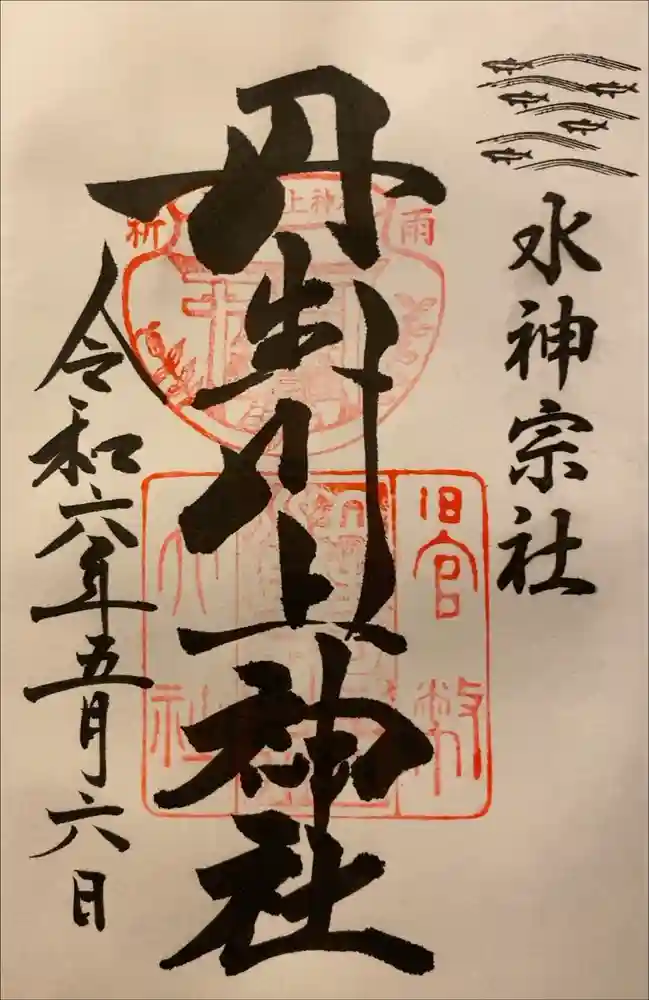 水神宗社
丹生川上神社
令和六年五月六日
祈
雨
旧官幣
大社